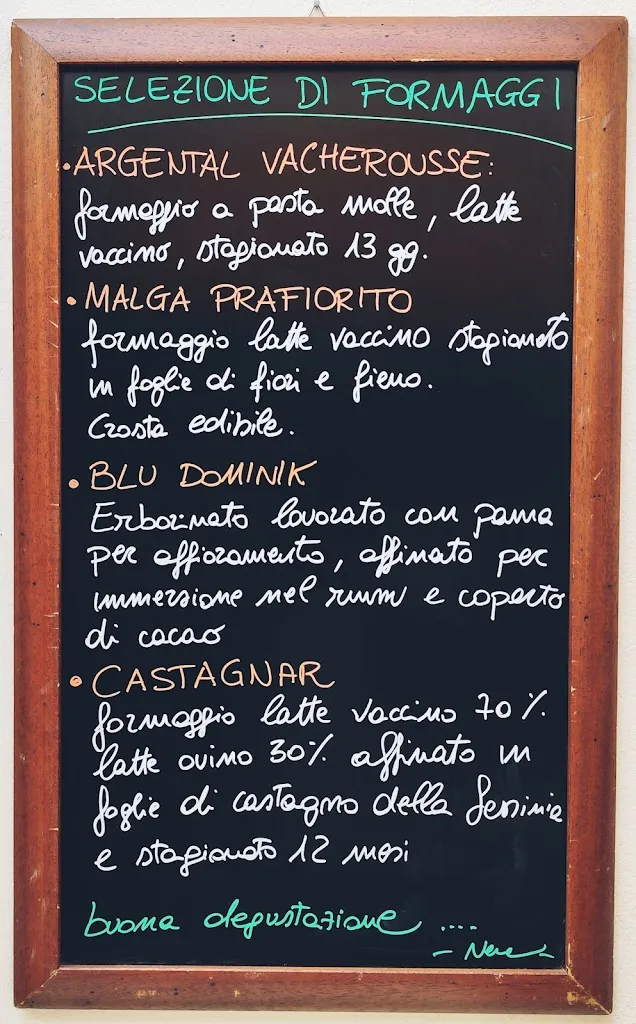 SELEZIONE DI FORMAGGI
• ARGENTAL VACHEROUSSE:
formaggio a pasta molle, latte
vaccino, stagionato 13 gg.
• MALGA PRAFIORITO
formaggio latte vaccino stagionato
in foglie di fiori e fieno.
Crosta edibile.
• BLU DOMINIK
Erborinato lavorato con panna
per affioramento, affinato per
immersione nel rum e coperto
di cacao
• CASTAGNAR
formaggio latte vaccino 70%
latte ovino 30% affinato in
foglie di castagno della
e stagionato 12 mesi
buona degustazione ....